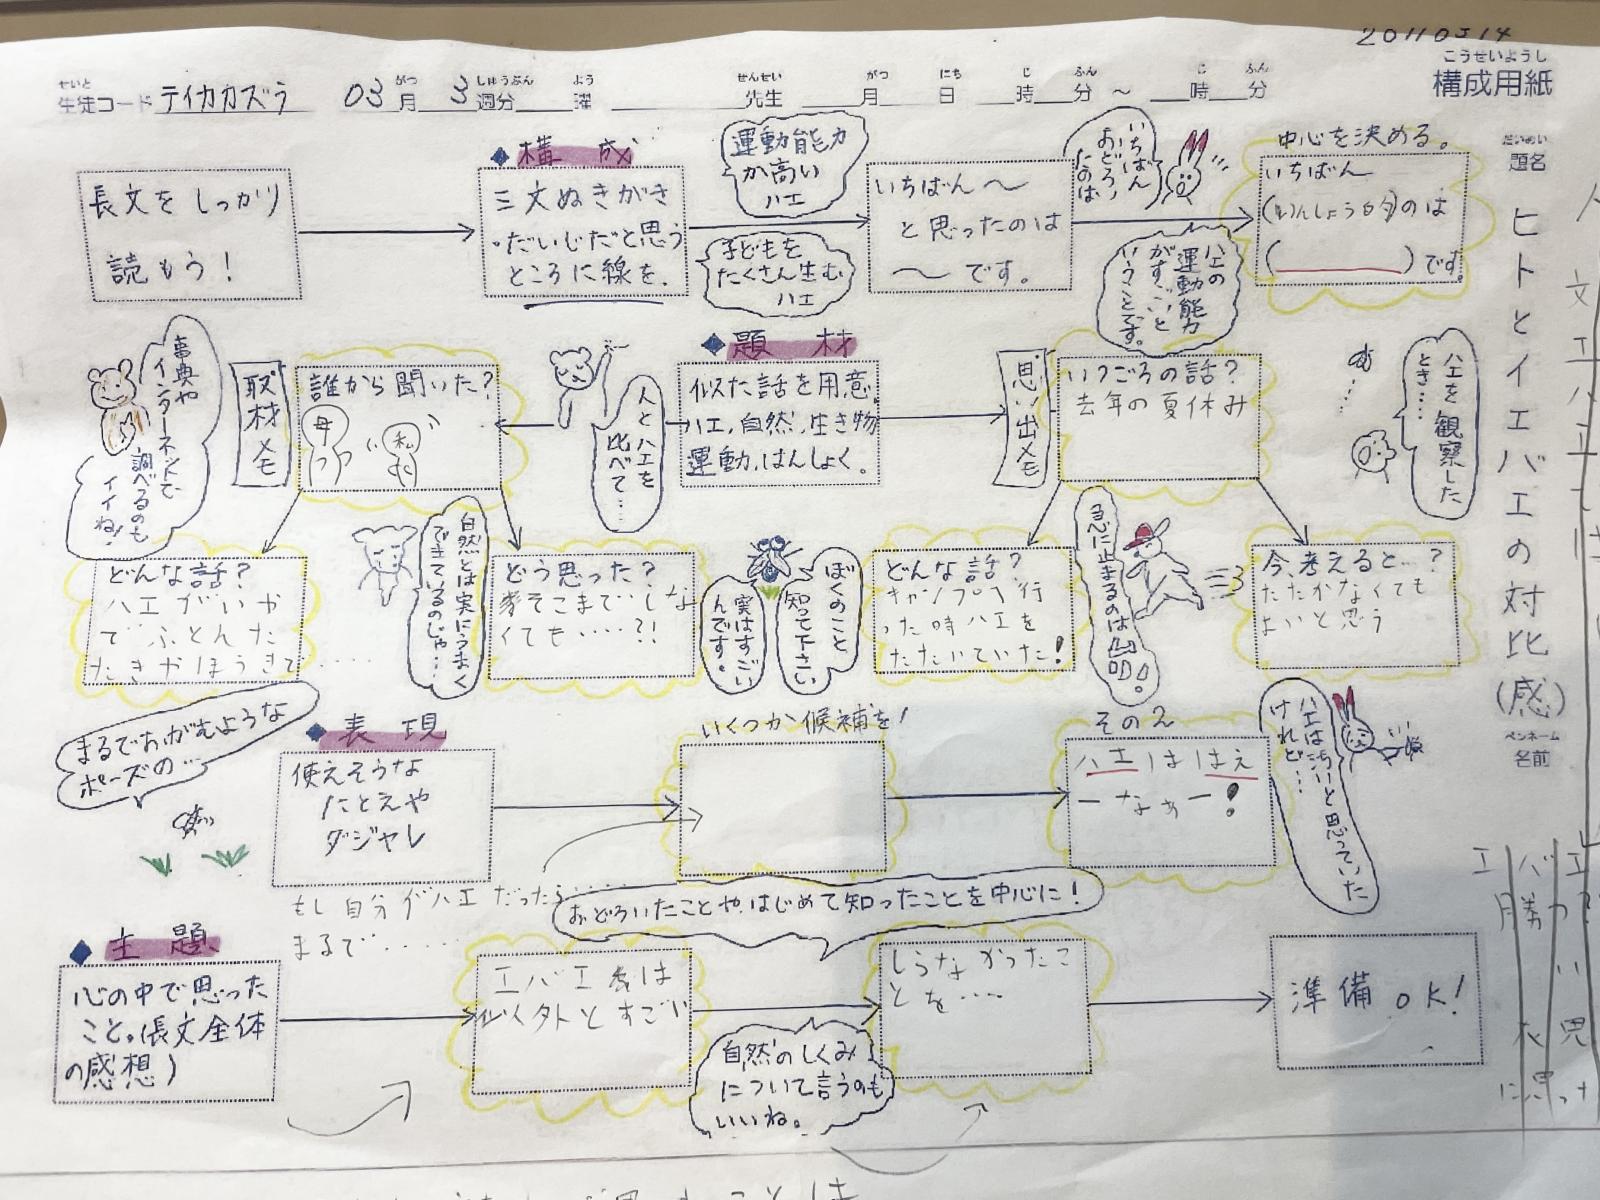 20110314
こうせいようし
構成用紙
せいと
生徒コード テイカカズラ
がつ しゅうぶん よう
03月 3週分 曜
せんせい
先生
がつ にち じ ふん じ ふん
月 日 時 分 ～ 時 分
だいめい
題名
ヒトとイエバエの対比(感)
ペンネーム
名前
長文をしっかり
読もう！
◆構成
三文ぬきがき
・だいじだと思う
ところに線を。
運動能力
が高い
ハエ
子どもを
たくさん生む
ハエ
いちばん〜
と思ったのは
〜です。
いちばん
おどろい
たのは、
中心を決める。
いちばん
(いんしょう的)のは
( )です。
ハエの
運動能力
がすごいと
いうことです。
◆題材
似た話を用意。
ハエ、自然、生き物
運動、はんしょく。
人とハエを
比べて……
取材メモ
誰から聞いた？
母
私
事典や
インターネットで
調べるのも
イイね！
どんな話？
ハエがいか
で ふとんた
たきやほうきで……
自然とは実にうまく
できているのじゃ…
どう思った？
そこまで…しな
くても……?!
実はすごい
んです。
ぼくのこと
知って下さい
思い出メモ
いつごろの話？
去年の夏休み
ハエを観察した
とき……
どんな話？
キャンプへ行
った時ハエを
たたいていた！
急に止まるのは
今、考えると…？
たたかなくても
よいと思う
◆表現
使えそうな
たとえや
ダジャレ
まるでおがむような
ポーズの…
もし自分がハエだったら……
まるで……
いくつか候補を！
その2
ハエははえ
ーなぁー！
ハエは汚いと思っていた
けれど…
◆主題
心の中で思った
こと。(長文全体
の感想)
おどろいたことや、はじめて知ったことを中心に！
エバエ は
以外とすごい
自然のしくみ
について言うのも
いいね。
しらなかったこ
とを…
準備OK！